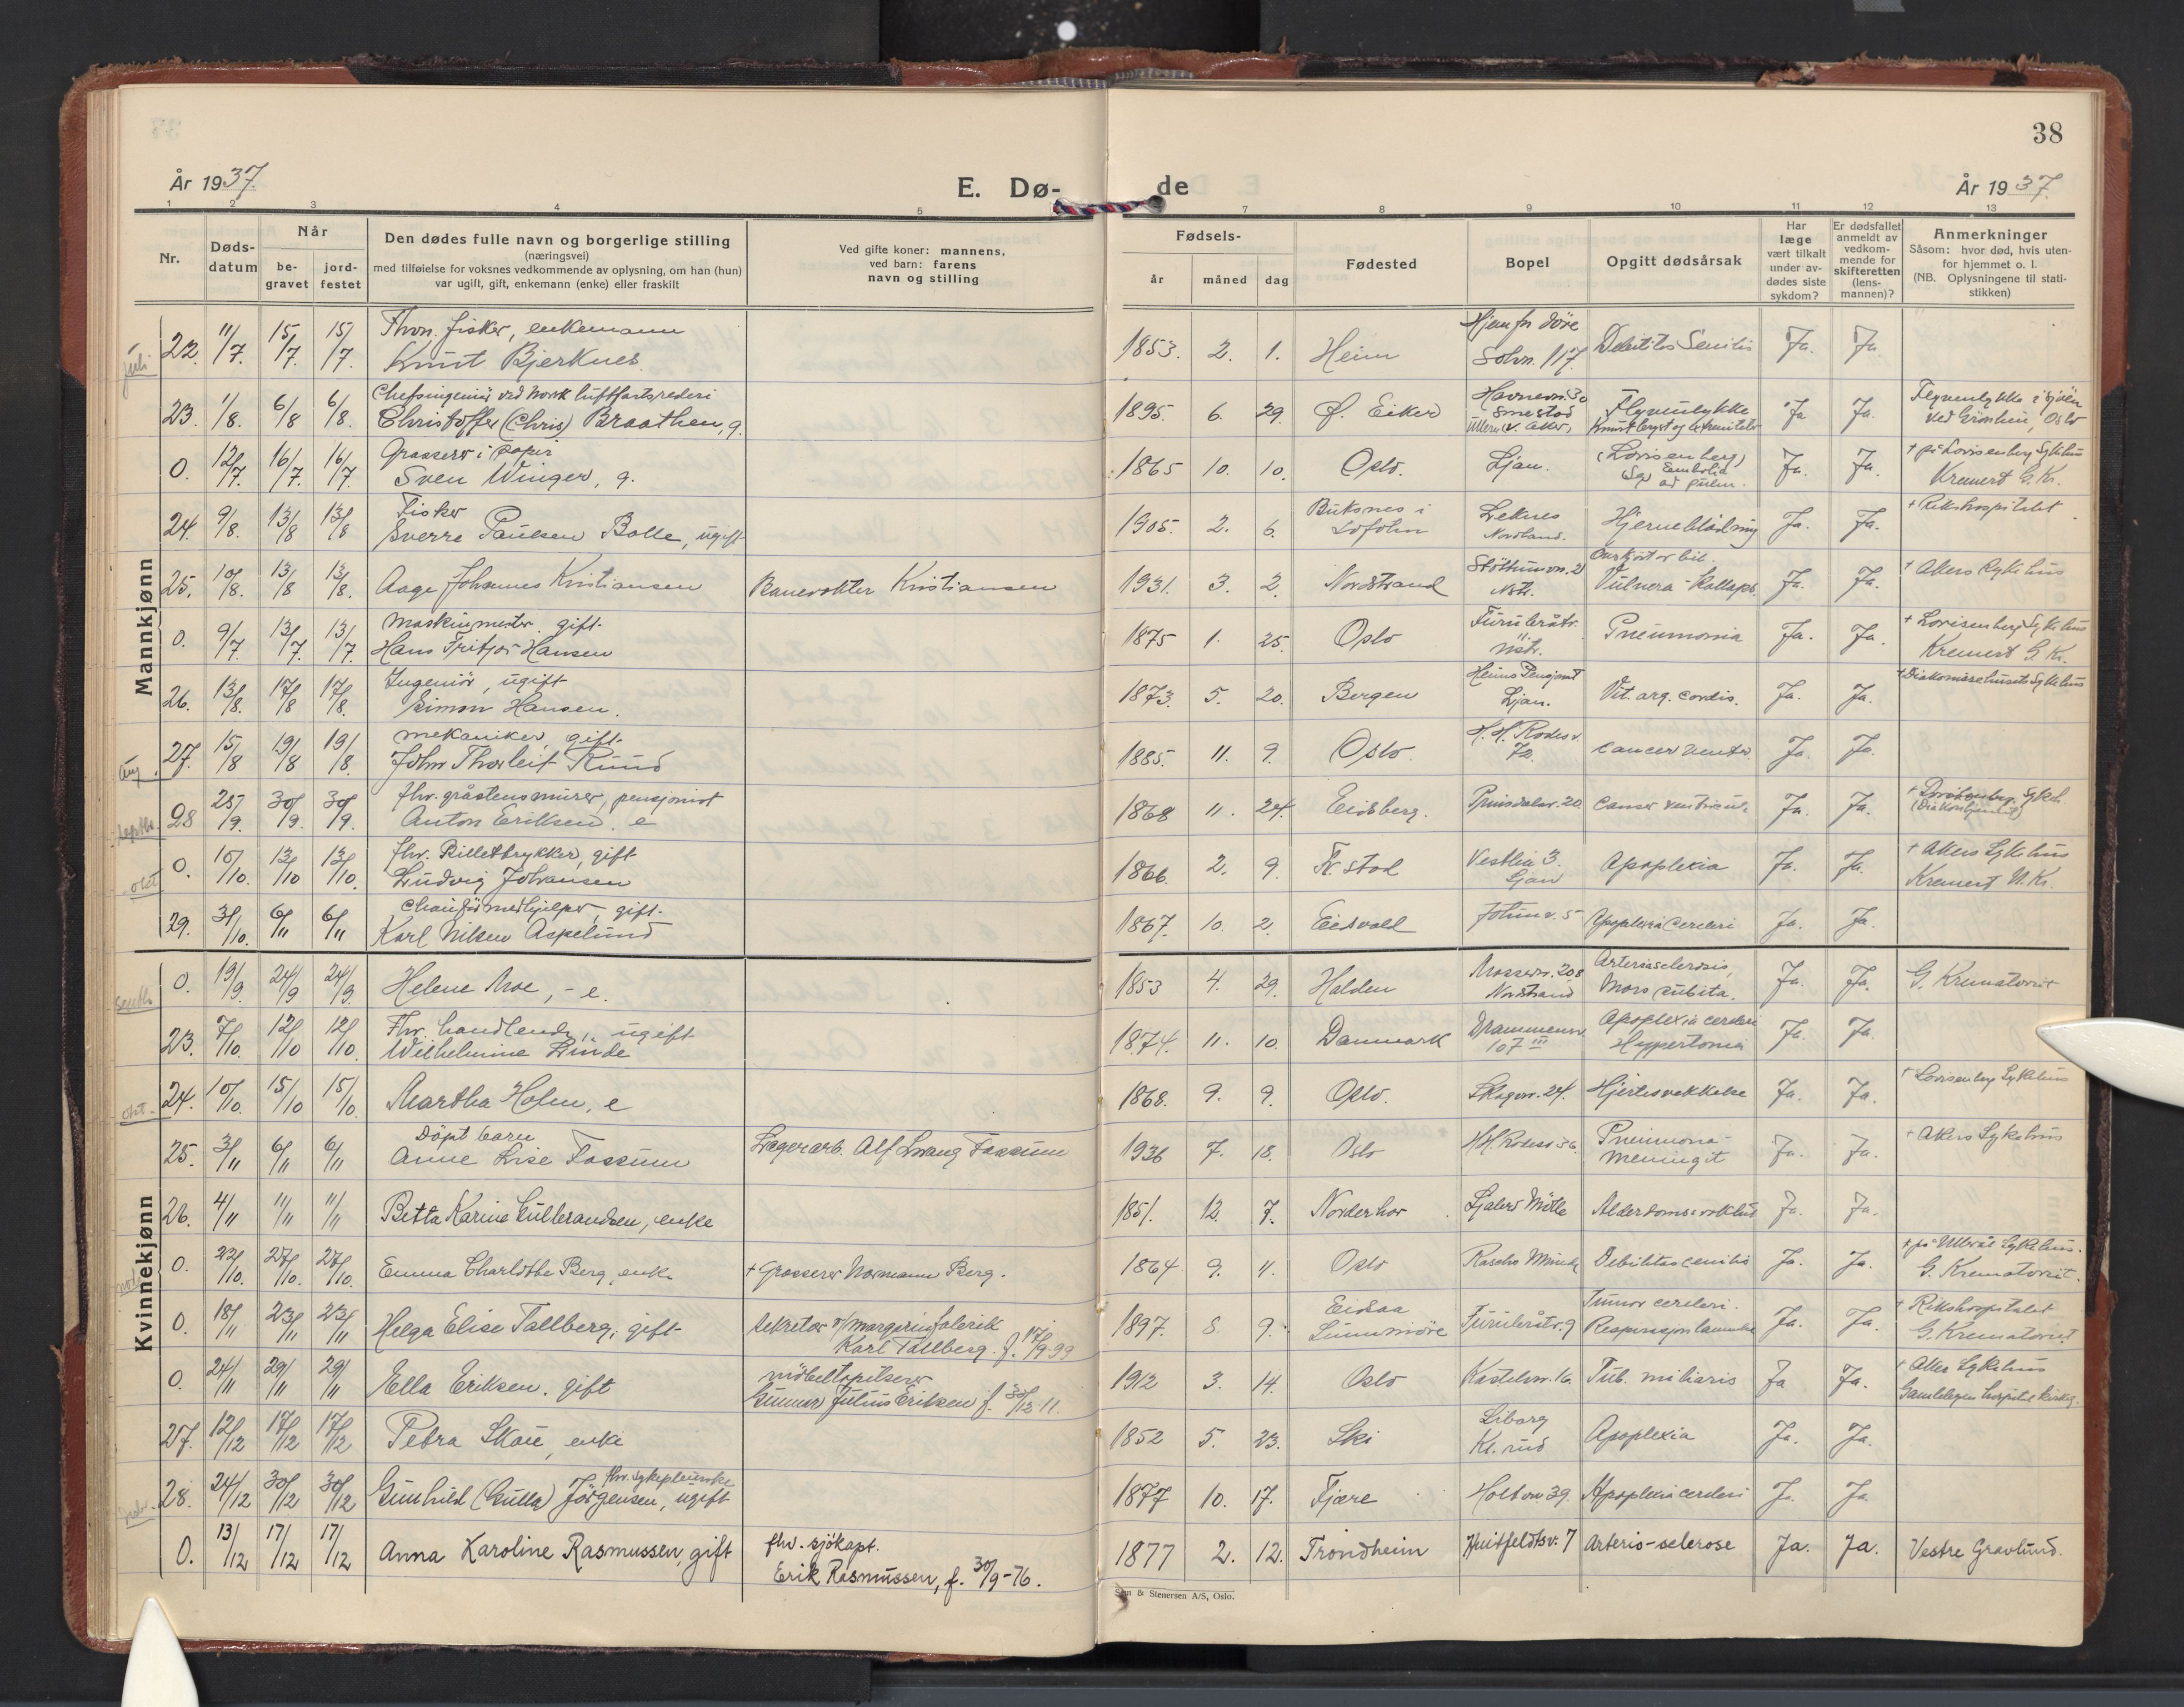 38
År 1937.
E. Dø-
de
År 1937.
1 2 3 4 5 7 8 9 10 11 12 13
Nr.
Døds-
datum
Når
be-
gravet
jord-
festet
Den dødes fulle navn og borgerlige stilling
(næringsvei)
med tilføielse for voksnes vedkommende av oplysning, om han (hun)
var ugift, gift, enkemann (enke) eller fraskilt
Ved gifte koner: mannens,
ved barn: farens
navn og stilling
Fødsels-
år måned dag
Fødested
Bopel
Opgitt dødsårsak
Har
læge
vært tilkalt
under av-
dødes siste
sykdom?
Er dødsfallet
anmeldt av
vedkom-
mende for
skifteretten
(lens-
mannen)?
Anmerkninger
Såsom: hvor død, hvis uten-
for hjemmet o. l.
(NB. Oplysningene til stati-
stikken)
Mannkjønn
juli
Fhv. fisker, enkemann
22. 11/7. 15/7. 15/7. Knut Bjerknes. 1853. 2. 1. Heim Solvn. 117. Debilitas Senilis Ja. Ja
Chefsingeniør ved Norsk luftfartsrederi
23. 1/8. 6/8 6/8. Christoffer (Chris) Braathen, g. 1895. 6. 29. Ø. Eiker Smestad Flyveulykke Ja Ja.
Flyveulykke i sjöen
ved Grönlien, Oslo
Grosserer i papir
0. 12/7. 16/7. 16/7. Sven Winger, g. 1865 10. 10. Oslo. Ljan. (Lovisenberg) Embolia ad pulm. Ja. Ja.
+ på Lovisenberg Sykehus
Kremert G. Kr.
Fisker
24. 9/8. 13/8 13/8 Sverre Paulsen Bolle, ugift 1905. 2. 6. Buksnes i Lofoten Leknes Nordland. Hjerneblödning Ja. Ja.
+ Rikshospitalet.
25. 10/8. 13/8 13/8. Aage Johannes Kristiansen Banevokter Kristiansen 1931. 3. 2. Nordstrand Nstr. Overkjört av bil. Vulnera - Kollaps. Ja. Ja.
+ Akers Sykehus
Maskinmester, gift.
0. 9/7. 13/7. 13/7. Hans Fritjof Hansen 1875 1. 25. Oslo Nstr. Pneumonia Ja. Ja.
+ Lovisenberg Sykehus
Kremert G. Kr.
Ingeniör, ugift
26. 13/8. 17/8 17/8. Simon Hansen. 1873. 5. 20. Bergen Heims Pensjonat Ljan. Vit. org. cordis. Ja. Ja.
+ Diakonissehusets Sykehus
aug.
mekaniker, gift.
27. 15/8 19/8 19/8. John Thorleif Ruud 1885. 11. 9. Oslo. Cancer ventr. Ja. Ja.
septbr.
fhv. gråstensmurer, pensjonist
28 25/9. 30/9. 30/9. Anton Eriksen, e 1868 11. 24. Eidsberg. Prinsdalsv. 20. Cancer ventricul. Ja. Ja.
okt
fhv. Billettrykker, gift
0. 10/10. 13/10 13/10. Ludvig Johansen 1866. 2. 9. Fr.stad Vestlia 3. Ljan Apoplexia Ja. Ja.
+ Akers Sykehus
Kremert N. Kr.
Chaufförmedhjelper, gift.
29. 31/10. 6/11 6/11 Karl Nilsen Aspelund 1867. 10. 2. Eidsvold Apoplexia cerebri Ja. Ja.
Kvinnekjønn
septb.
0. 19/9. 24/9 24/9. Helene Moe, - e. 1853 4. 29. Halden Mossevn. 208 Nordstrand Arteriosclerosis, Mors subita. Ja. Ja.
G. Krematoriet
Fhv. handlende, ugift
23. 7/10. 12/10 12/10. Wilhelmine Linde 1874. 11. 10. Danmark Drammensv. 107 III Apoplexia cerebri Hypertonia Ja. Ja
okt.
24. 10/10. 15/10 15/10. Martha Holm, e 1868. 9. 9. Oslo. Skogvn. 24. Hjertesvekkelse Ja. Ja.
+ Lovisenberg Sykehus
Döpt barn
25. 3/11 6/11 6/11 Anne Lise Fossum Lagerarb. Alf Fossum 1936 7. 18. Oslo Pneumonia - meningit Ja. Ja.
+ Akers Sykehus
26. 4/11 11/11 11/11 Betta Karine Gulbrandsen, enke 1851. 12. 7. Norderhov Alderdomssvakhet Ja. Ja.
nov.
0. 22/10. 27/10. 27/10. Emma Charlotte Berg, enke + Grosserer Normann Berg. 1864 9. 4. Oslo Debilitas senilis Ja. Ja.
+ på Ullevål Sykehus.
G. Krematoriet.
0 18/11 23/11 23/11 Helga Elise Tallberg, gift sekretær v/ margarinfabrikk
Karl Tallberg. f. 17/9-99 1897. 8. 9. Eidsaa Sunnmöre Tumor cerebri. Ja. Ja.
+ Rikshospitalet
G. Krematoriet
0. 24/11 29/11 29/11 Ella Eriksen. gift möbeltapetserer
Gunnar Julius Eriksen f. 30/12-11. 1912 3. 14. Oslo Kastelvn. 16. Tub. miliaris Ja Ja.
+ Aker Sykehus
27. 12/12 17/12 17/12 Petra Skau, enke 1852 5. 23. Ski Apoplexia Ja. Ja.
desbr.
fhv. sykepleierske
28. 24/12 30/12 30/12 Gunhild (Gulla) Jörgensen, ugift 1877 10. 17. Fjære Holtvn 39. Apoplexia cerebri Ja. Ja.
0. 13/12 17/12 17/12 Anna Karoline Rasmussen, gift fhv. sjökapt.
Erik Rasmussen, f. 30/9-76. 1877 2. 12. Trondheim Huitfeldtsv. 7 Arterio-sclerose Ja. Ja. Vestre Gravlund.
& Stenersen A/S, Oslo.